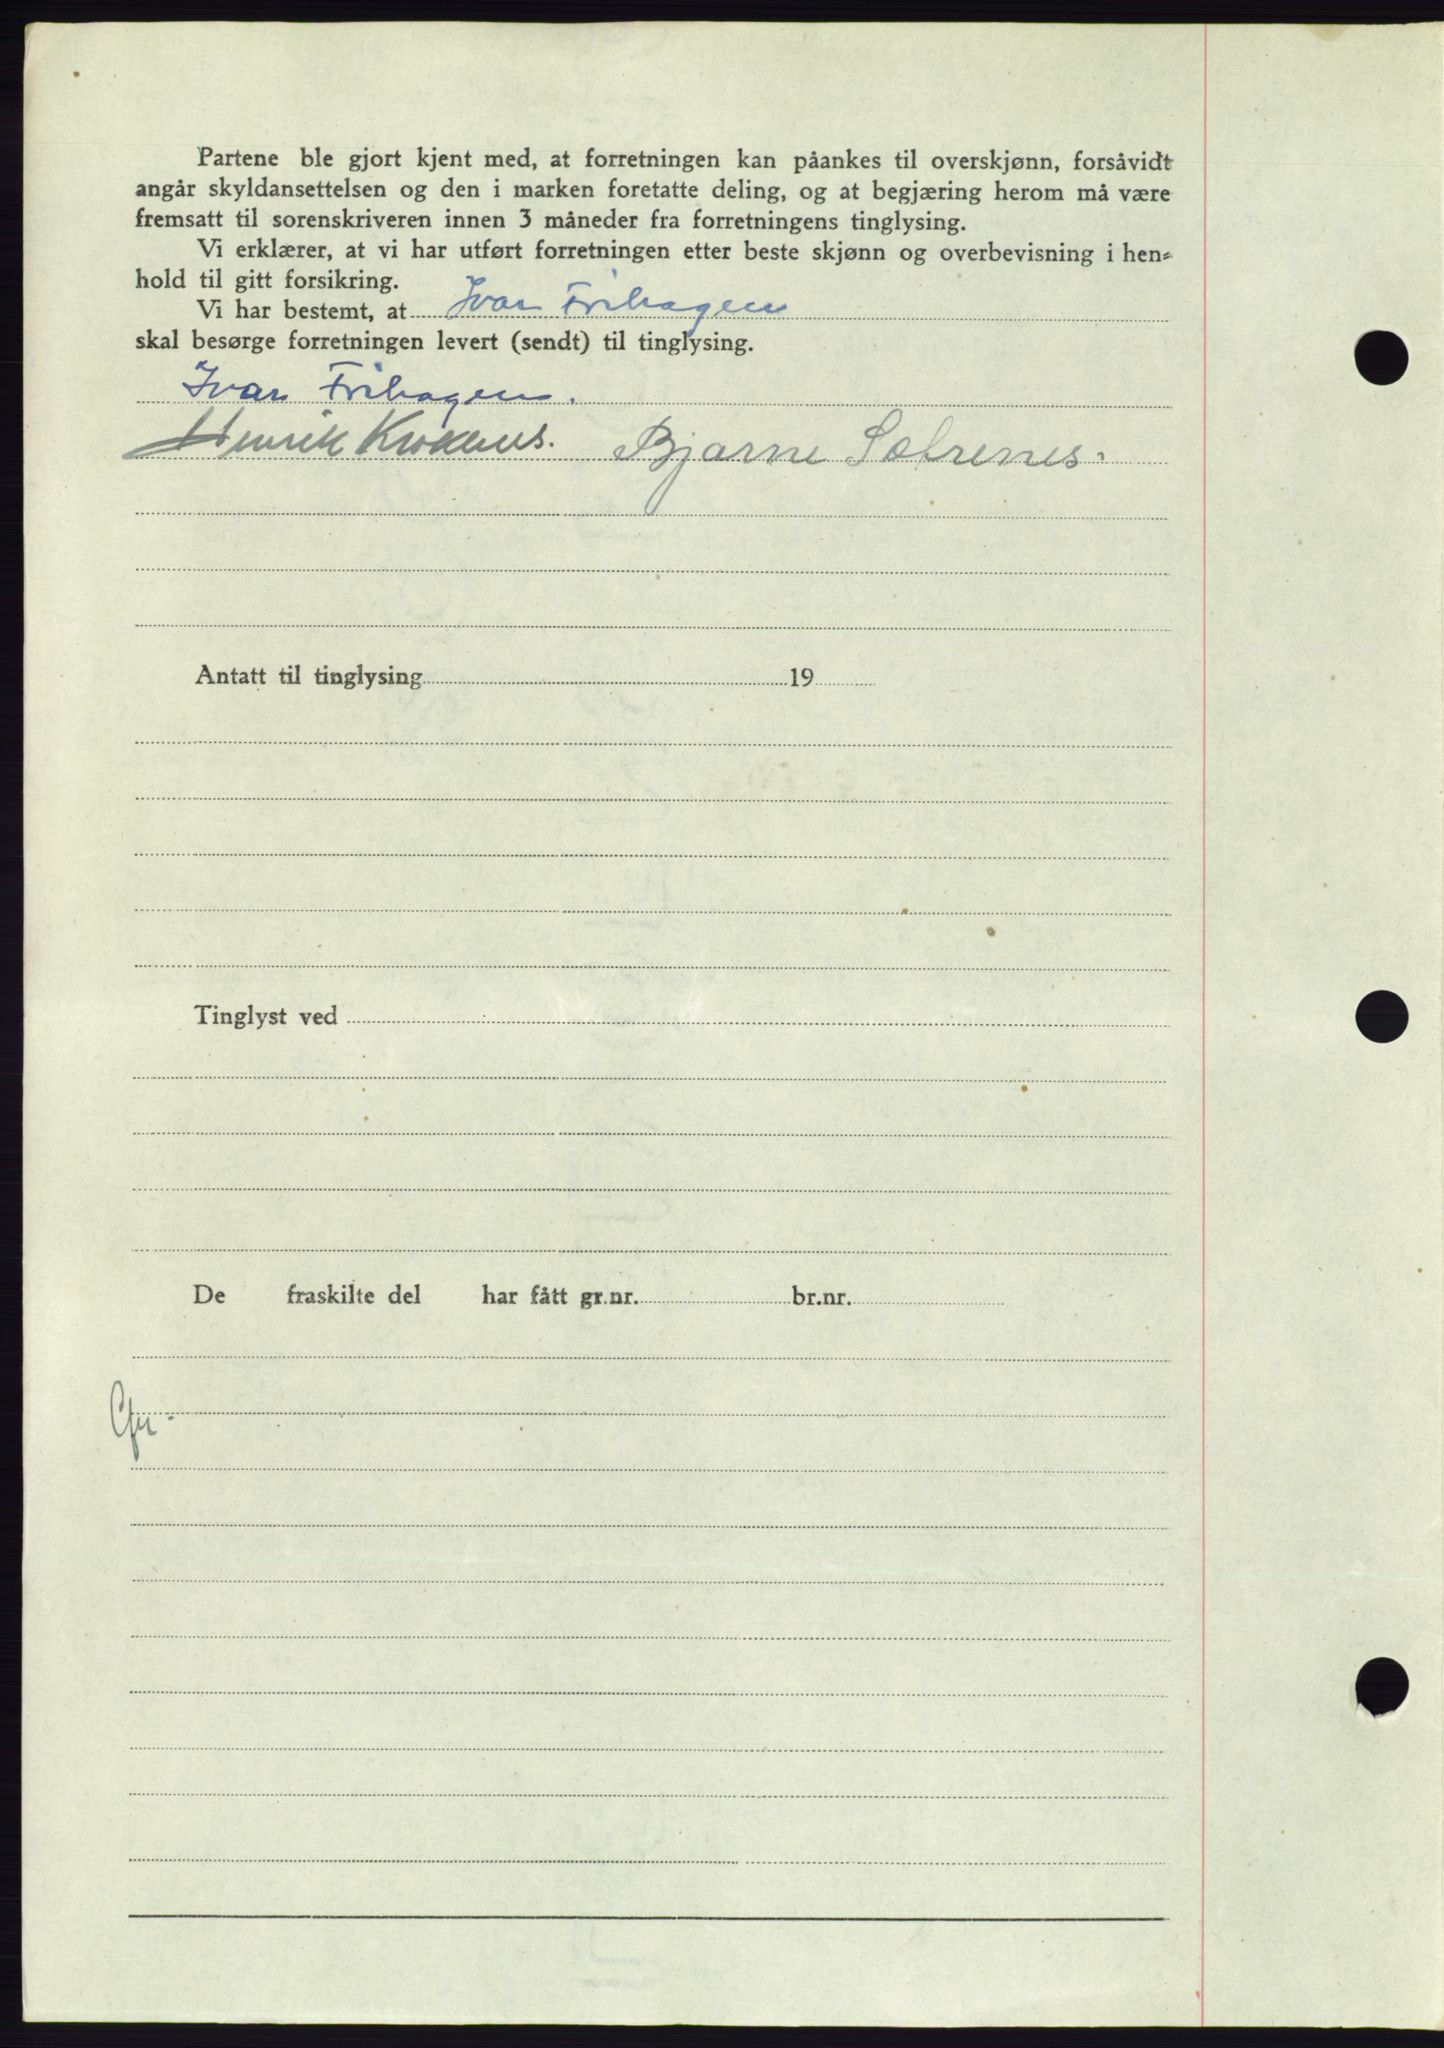 Partene ble gjort kjent med, at forretningen kan påankes til overskjønn, forsåvidt
angår skyldansettelsen og den i marken foretatte deling, og at begjæring herom må være
fremsatt til sorenskriveren innen 3 måneder fra forretningens tinglysing.
Vi erklærer, at vi har utført forretningen etter beste skjønn og overbevisning i hen-
hold til gitt forsikring.
Vi har bestemt, at Ivar Frihagen
skal besørge forretningen levert (sendt) til tinglysing.
Ivar Frihagen.
Henrik Krokenes. Bjarne Sætrenes.
Antatt til tinglysing 19
Tinglyst ved
De fraskilte del har fått gr.nr. br.nr.